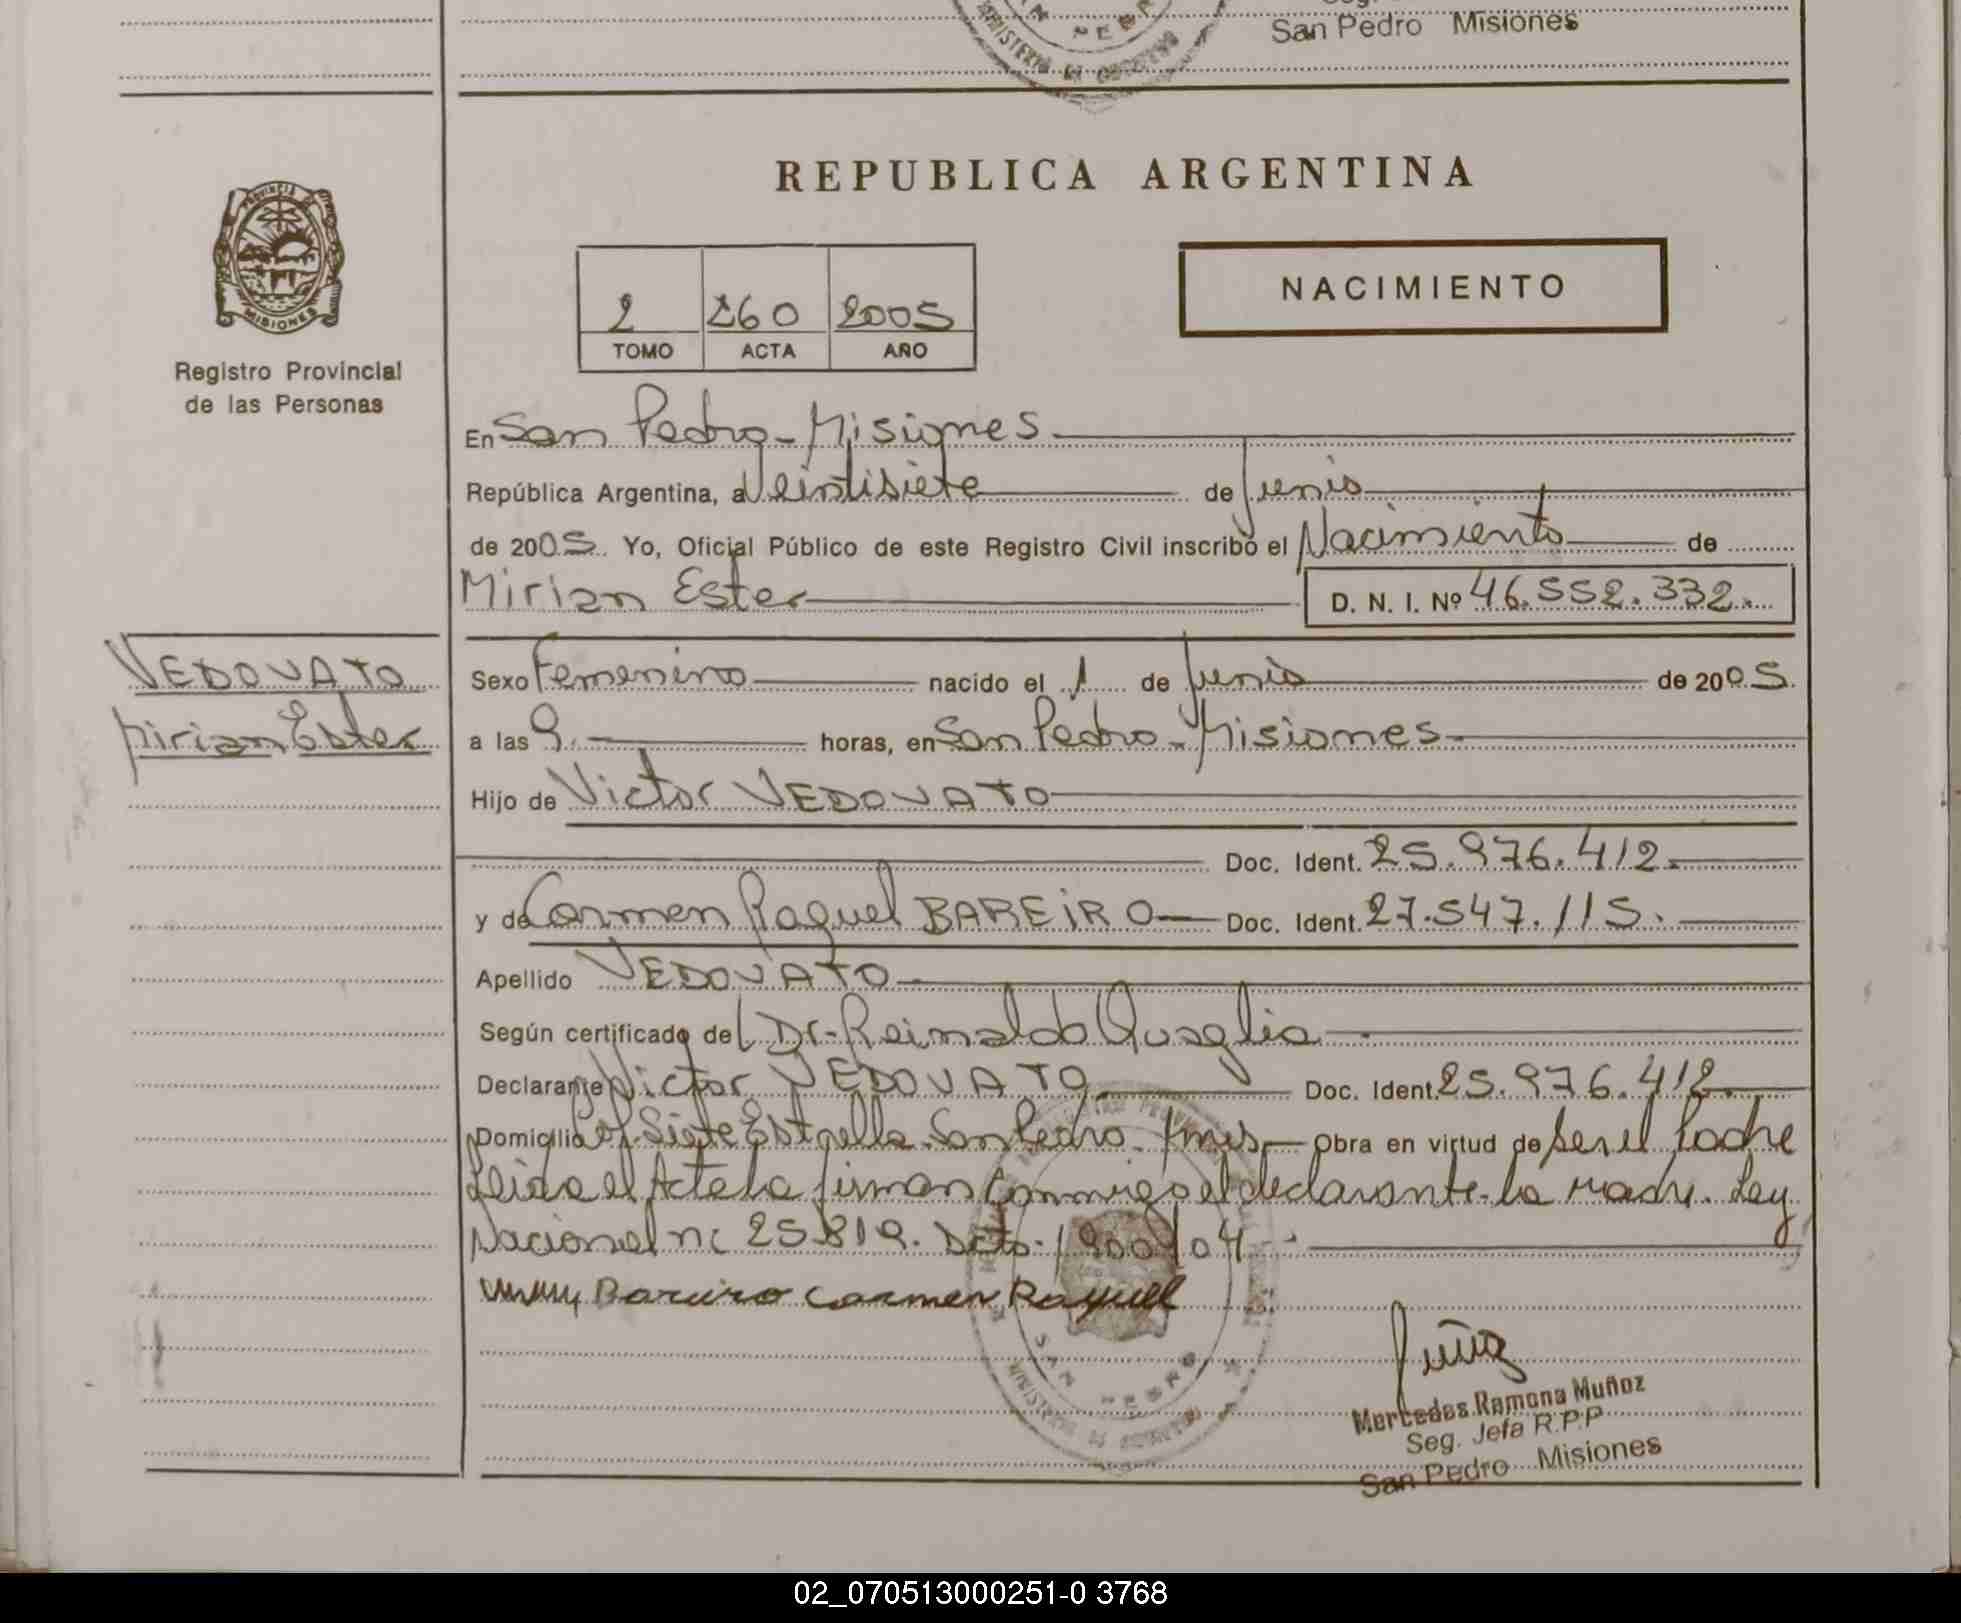 San Pedro Misiones
REPUBLICA ARGENTINA
NACIMIENTO
2 260 2005
TOMO ACTA AÑO
PROVINCIA DE
MISIONES
Registro Provincial
de las Personas
En San Pedro - Misiones
República Argentina, a Veintisiete de Junio
de 2005. Yo, Oficial Público de este Registro Civil inscribo el Nacimiento de
Mirian Ester D. N. I. Nº 46.552.332.
VEDOVATO
Mirian Ester
Sexo Femenino nacido el 1 de Junio de 2005.
a las 9. horas, en San Pedro - Misiones
Hijo de Victor VEDOVATO
Doc. Ident. 25.976.412.
y de Carmen Raquel BAREIRO Doc. Ident. 27.547.115.
Apellido VEDOVATO
Según certificado del Dr. Reinaldo Quaglia
Declarante Victor VEDOVATO Doc. Ident. 25.976.412.
Domicilio Siete Estrella San Pedro - Mnes Obra en virtud de ser el Padre
Leida el Acta la firman Conmigo el declarante la madre. Ley
Nacional nº 25819. Dcto. 1900/04
Bareiro Carmen Raquel
SAN PEDRO
MINISTERIO DE GOBIERNO
Mercedes Ramona Muñoz
Seg. Jefa R.P.P
San Pedro Misiones
02_070513000251-0 3768